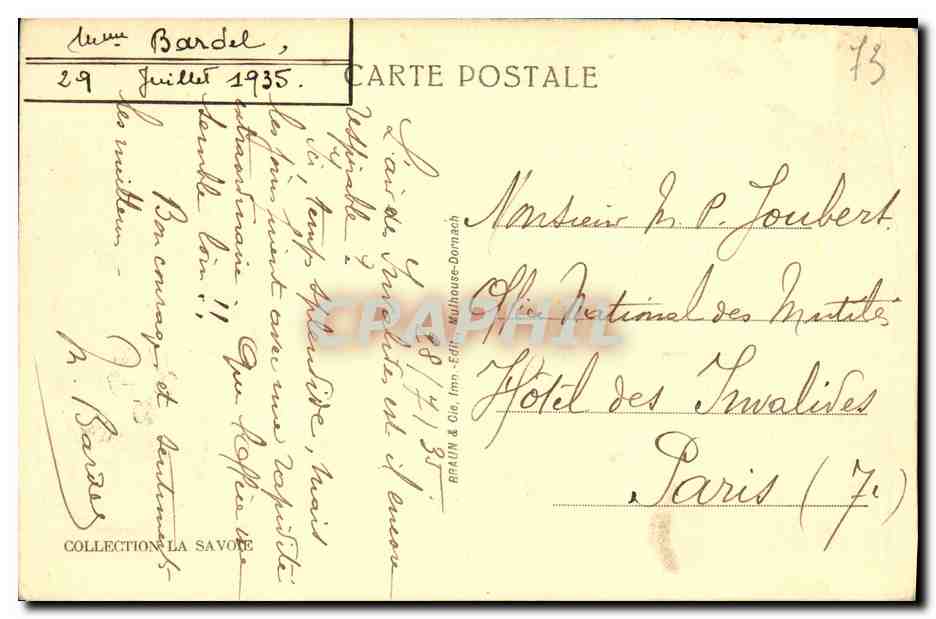 Mme Bardel,
29 Juillet 1935.
CARTE POSTALE
73
28/7/35.
L'air des Invalides est-il encore
respirable ?
Ici, temps splendide, mais
les jours fuient avec une rapidité
extraordinaire. Que l'office me
semble loin !!
Bon courage, et sentiments
les meilleurs -
M. Bardel
BRAUN & Cie, Imp.-Edit., Mulhouse-Dornach
Monsieur M. P. Joubert.
Office National des Mutilés
Hôtel des Invalides
Paris (7e)
COLLECTION LA SAVOIE
CPAPHIL